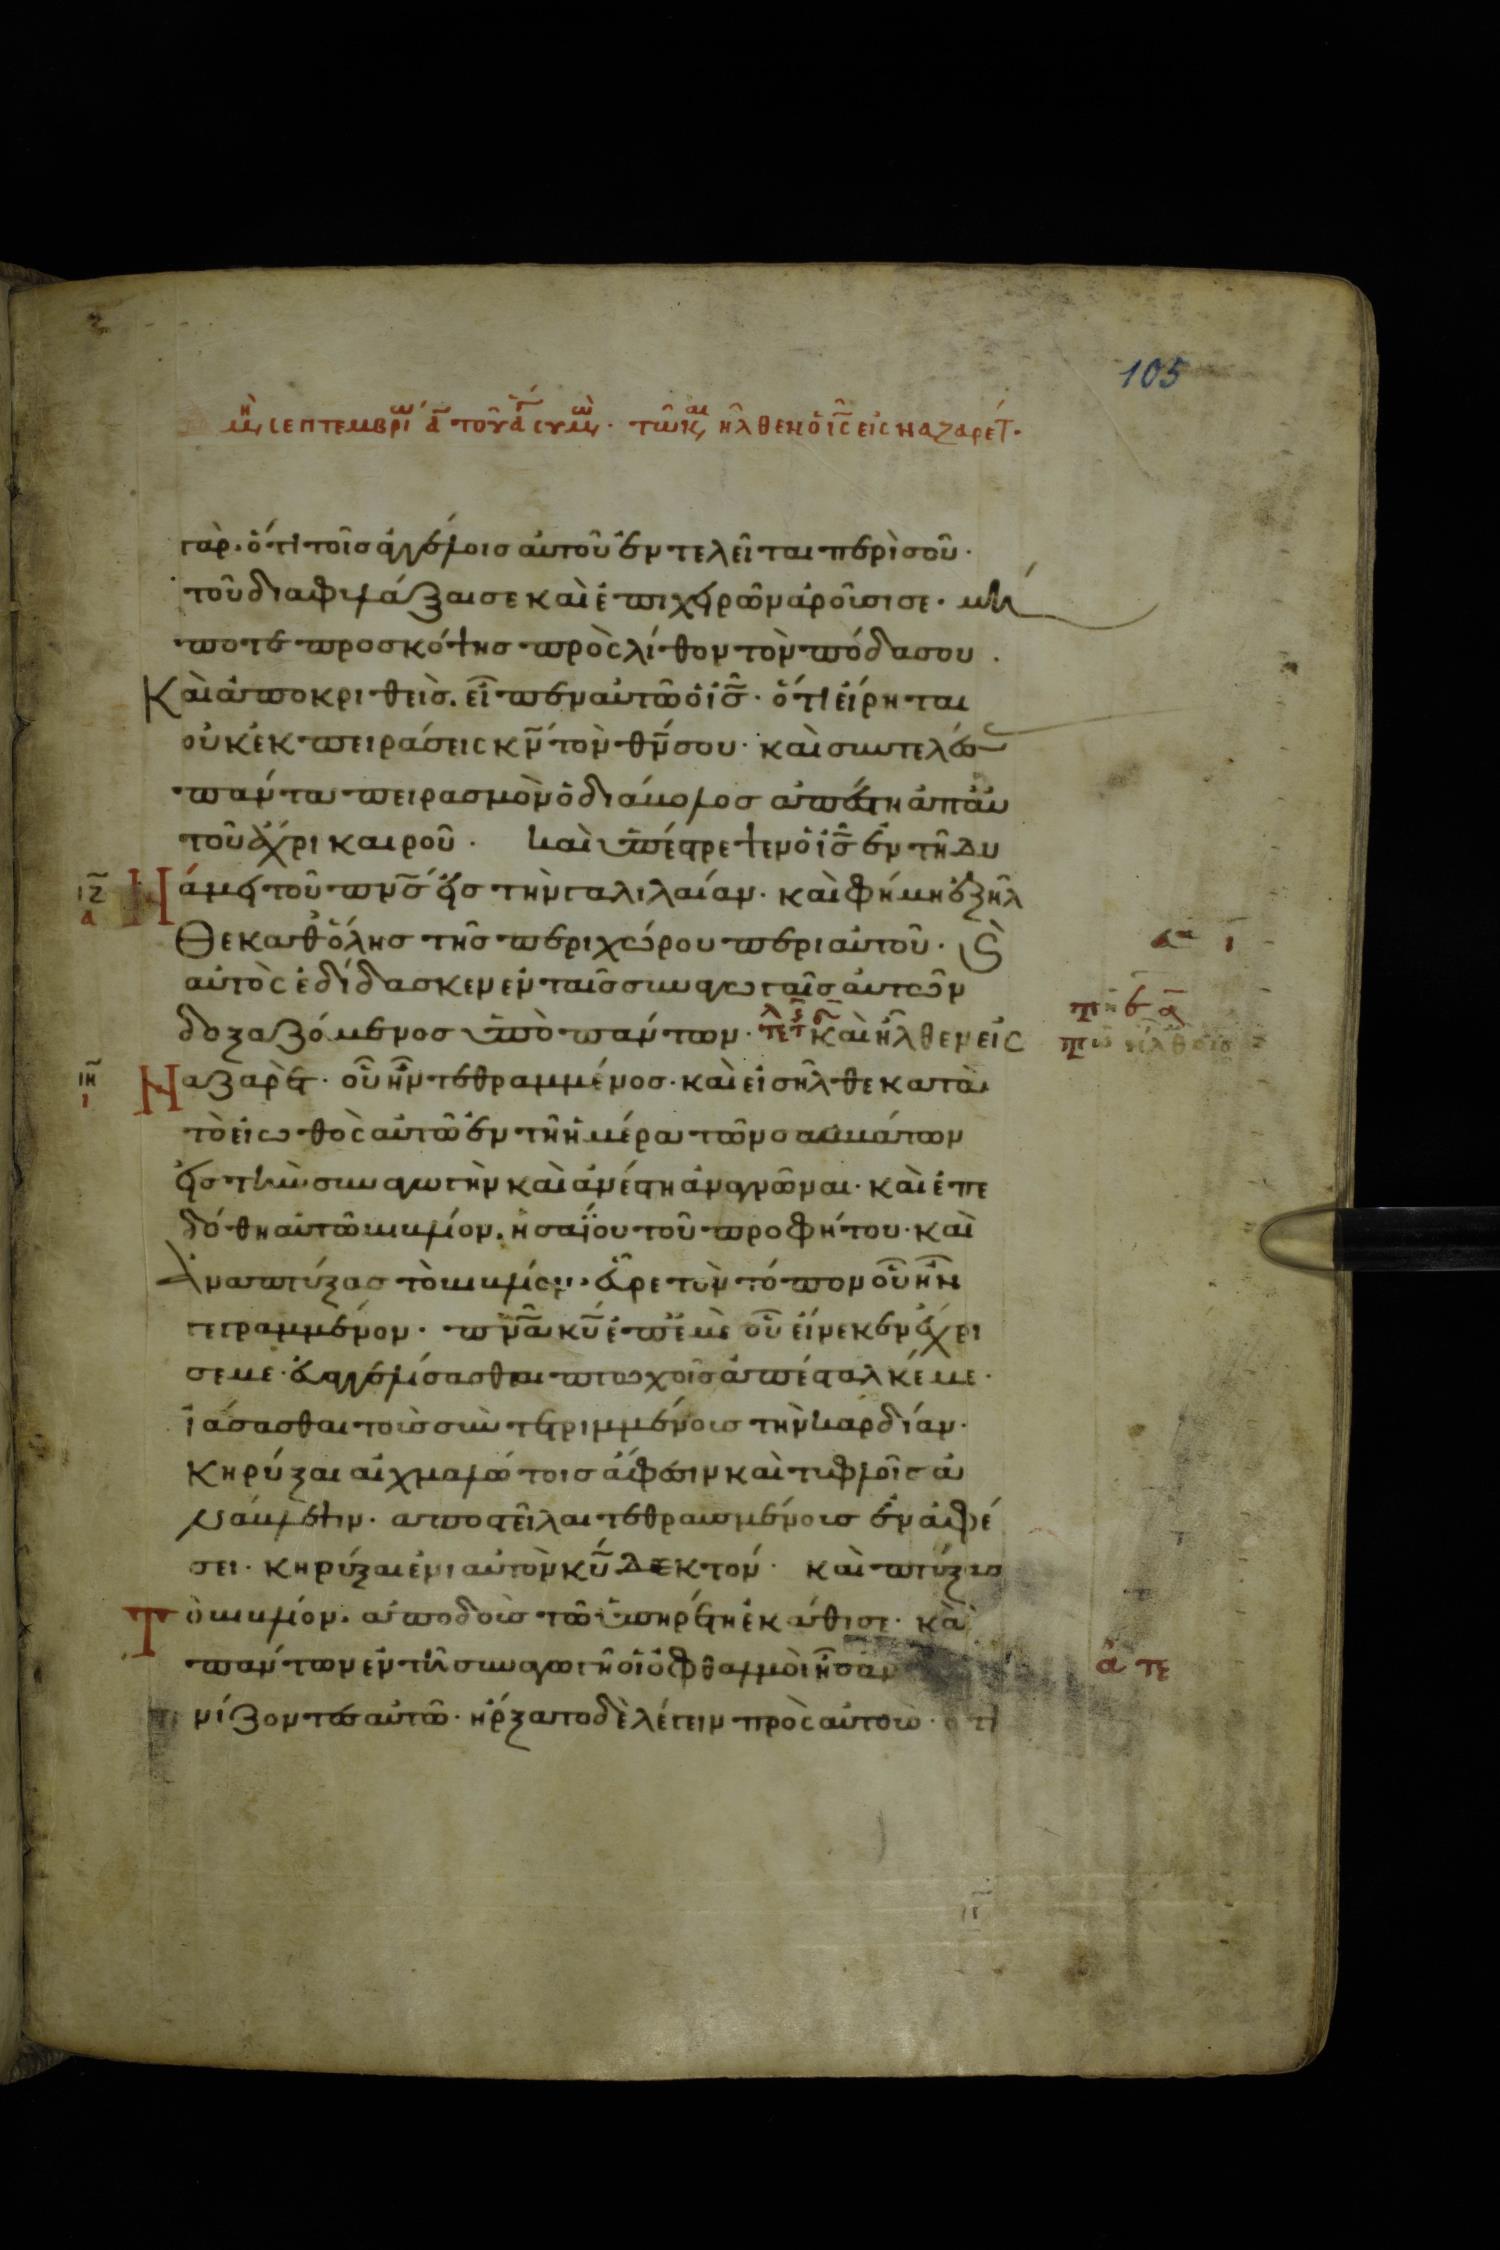 105
μη σεπτεμβριω α του αγ συμεω· τω κ, ηλθεν ὁ ις εις ναζαρετ·
γαρ· ὅτι τοῖς ἀγγέλοις αυτοῦ ἐντελεῖται περὶ σοῦ·
τοῦ διαφυλάξαι σε καὶ ἐπι χειρῶν ἀροῦσι σε· μή
ποτε προσκόψης πρὸς λίθον τὸν πόδα σου.
Καὶ ἀποκριθεὶς. εἶπεν αὐτῶ ὁ ις· ὅτι εἴρηται
οὐκ ἐκπειράσεις κν τὸν θν σου· καὶ συντελέσ
πάντα πειρασμὸν ὁ διάβολος ἀπέστη ἀπ αὐ
τοῦ ἄχρι καιροῦ· καὶ ὑπέστρεψεν ὁ ις ἐν τῆ δυ
ιζ α
Νάμει τοῦ πνς εἰς τὴν γαλιλαίαν· καὶ φήμη ἐξῆλ
Θε καθ ὅλης τῆς περιχώρου περι αυτοῦ· ϗ
αὐτὸς ἐδίδασκεν ἐν ταῖς συναγωγαῖς αὐτῶν
δοξαζόμενος ὑπὸ πάντων· καὶ ἦλθεν εἰς
ιη ι
Ναζαρὲτ· οὗ ἦν τεθραμμένος· καὶ εἰσῆλθε κατὰ
τὸ εἰωθὸς αὐτῶ ἐν τῆ ἡμέρα τῶν σαββάτων
εἰς τὴν συναγωγὴν καὶ ἀνέστη ἀναγνῶναι· καὶ ἐπε
δόθη αὐτῶ βιβλίον. ἡσαΐου τοῦ προφήτου· καὶ
Ἀναπτύξας τὸ βιβλίον· εὗρε τὸν τόπον οὗ ἦν
γεγραμμένον· πνα κυ ἐπ ἐμὲ οὗ εἵνεκεν ἔχρι
σε με· εὐαγγελίσασθαι πτωχοῖς ἀπέσταλκέ με·
ἰάσασθαι τοὺς συντετριμμένους τὴν καρδίαν·
κηρύξαι αἰχμαλώτοις ἄφεσιν καὶ τυφλοῖς ἀ
νάβλεψιν· ἀποστεῖλαι τεθραυσμένους ἐν ἀφέ
σει· κηρύξαι ἐνιαυτὸν κυ δεκτόν· καὶ πτύξας
Τὸ βιβλίον. ἀποδοὺς τῶ ὑπηρέτη ἐκάθισε· καὶ
πάντων ἐν τῆ συναγωγῆ οἱ ὀφθαλμοὶ ἦσαν
νίζοντες αὐτῶ· ἤρξατο δὲ λέγειν πρὸς αὐτοὺς· ὅτι
ἀ τε